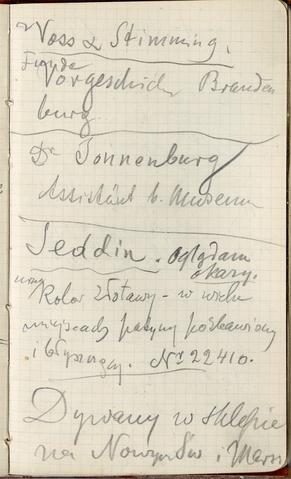 Voss & Stimming.
Frigda
Vorgeschich. Branden
burg.
Dr Tonnenburg
Assistänt b. Museum
Seddin. Oglądam
okazy.
urny Kolor złotawy - w wielu
miejscach patyny pozbawiony
i błyszczący. Nr 22410.
Dywany w sklepie
na Nowym Św. i Mars